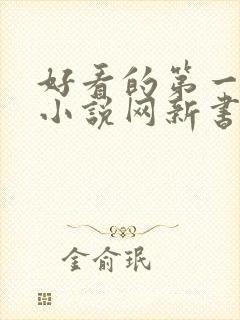 好看的第一
小说网新书
金俞珉